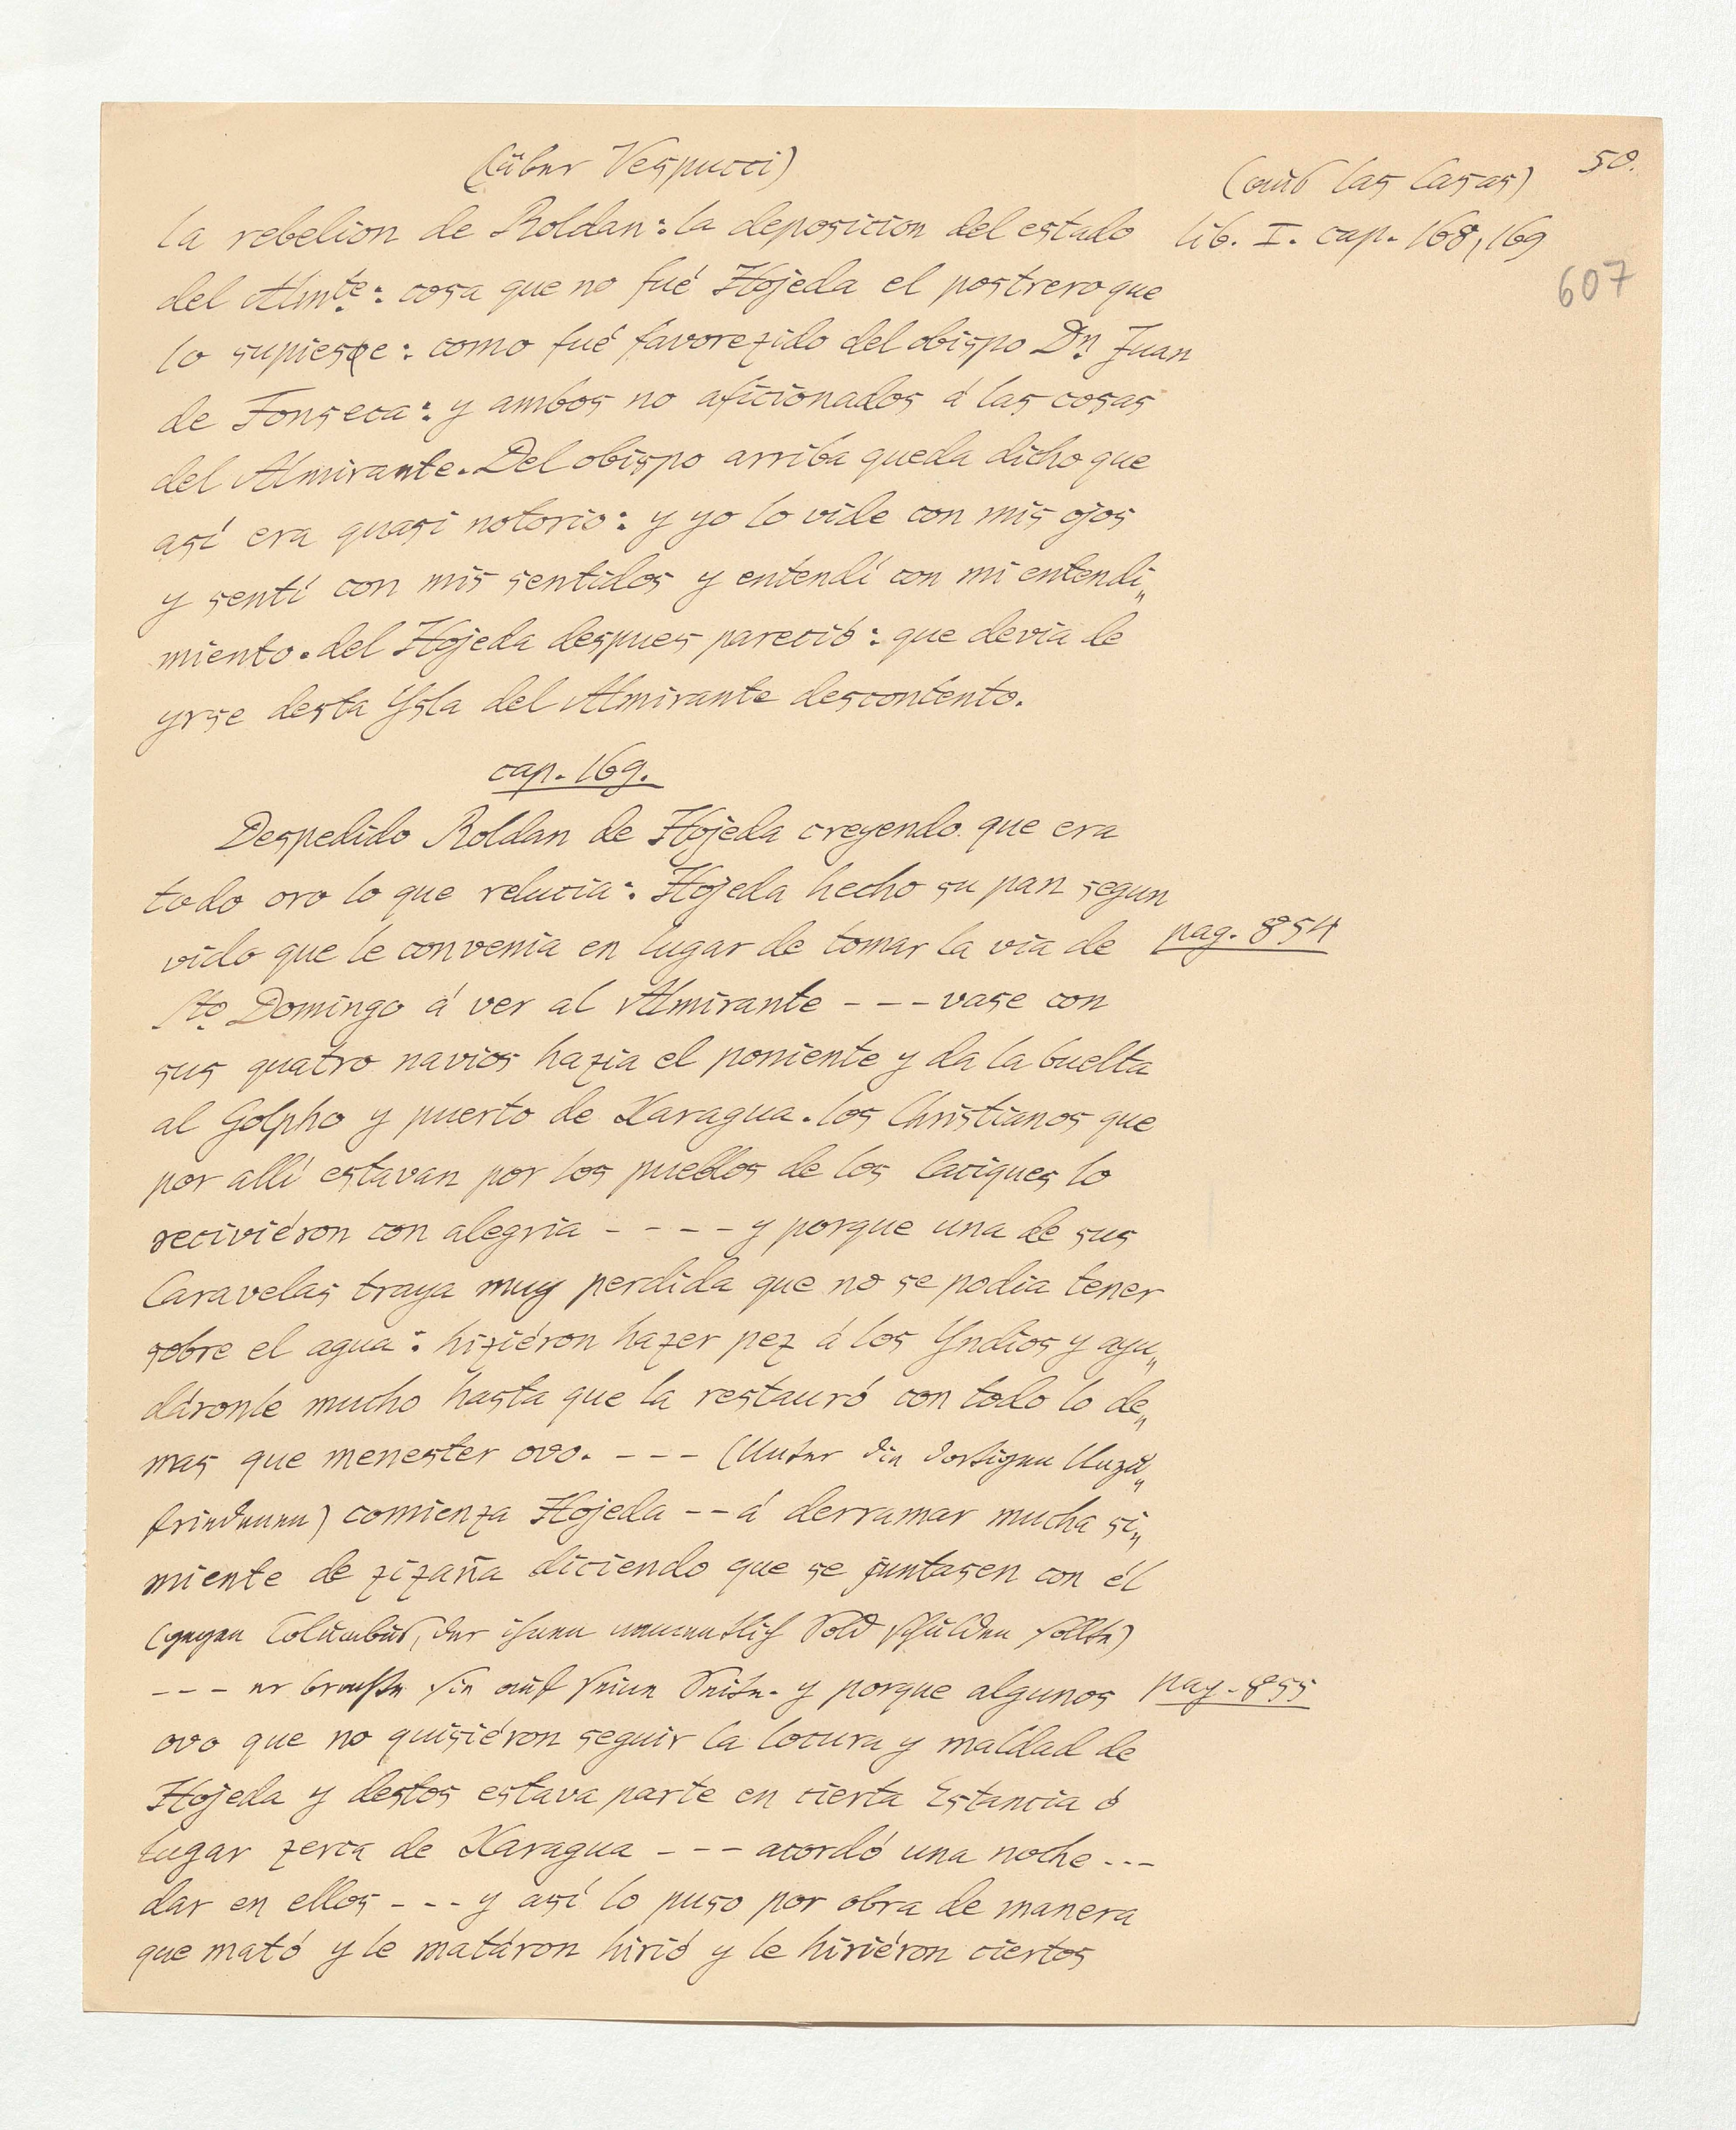 50.
(über Vespucci)
(aus las Casas)
la rebelion de Roldan: la deposicion del estado
lib. I. cap. 168, 169
del Almte: cosa que no fué Hojeda el postrero que
607
lo supiese: como fué favorezido del obispo Dn Juan
de Fonseca: y ambos no aficionados á las cosas
del Almirante. Del obispo arriba queda dicho que
así era quasi notorio: y yo lo vide con mis ojos
y sentí con mis sentidos y entendí con mi entendi„
miento. del Hojeda despues pareció: que devia de
yrse desta Ysla del Almirante descontento.
cap. 169.
Despedido Roldan de Hojeda creyendo que era
todo oro lo que relucia: Hojeda hecho su pan segun
vido que le convenia en lugar de tomar la via de
pag. 854
Sto Domingo á ver al Almirante - - - vase con
sus quatro navios hazia el poniente y da la buelta
al Golpho y puerto de Xaragua. los Christianos que
por allí estavan por los pueblos de los Caciques lo
reciviéron con alegria - - - - y porque una de sus
Caravelas traya muy perdida que no se podia tener
sobre el agua: hiziéron hazer pez á los Yndios y ayu„
dáronle mucho hasta que la restauró con todo lo de„
mas que menester ovo. - - - (Unter die dortigen Unzu„
friedenen) comienza Hojeda - - á derramar mucha si„
miente de zizaña diciendo que se juntasen con él
(gegen Columbus, der ihnen namentlich Sold schulden sollte)
- - - er brachte sie auf seine Seite. y porque algunos
pag. 855
ovo que no quisiéron seguir la locura y maldad de
Hojeda y destos estava parte en cierta Estancia ó
lugar zerca de Xaragua - - - acordó una noche - - -
dar en ellos - - - y así lo puso por obra de manera
que mató y le matáron hirió y le hiriéron ciertos